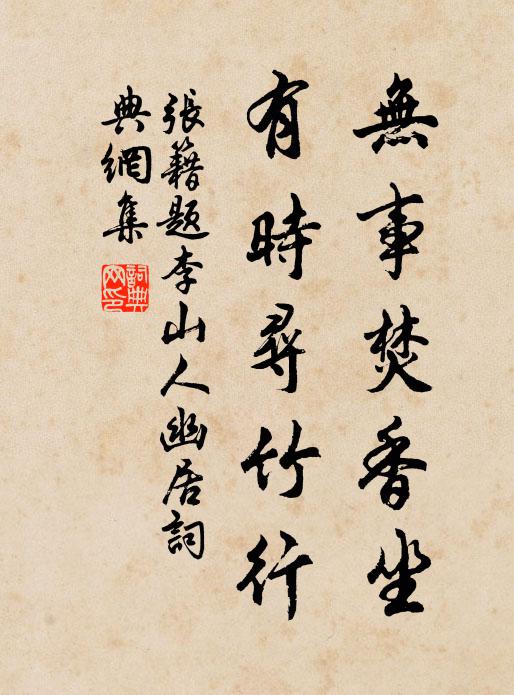 無事焚香坐
有時尋竹行
張籍題李山人幽居詞
典網集
詞典
网印